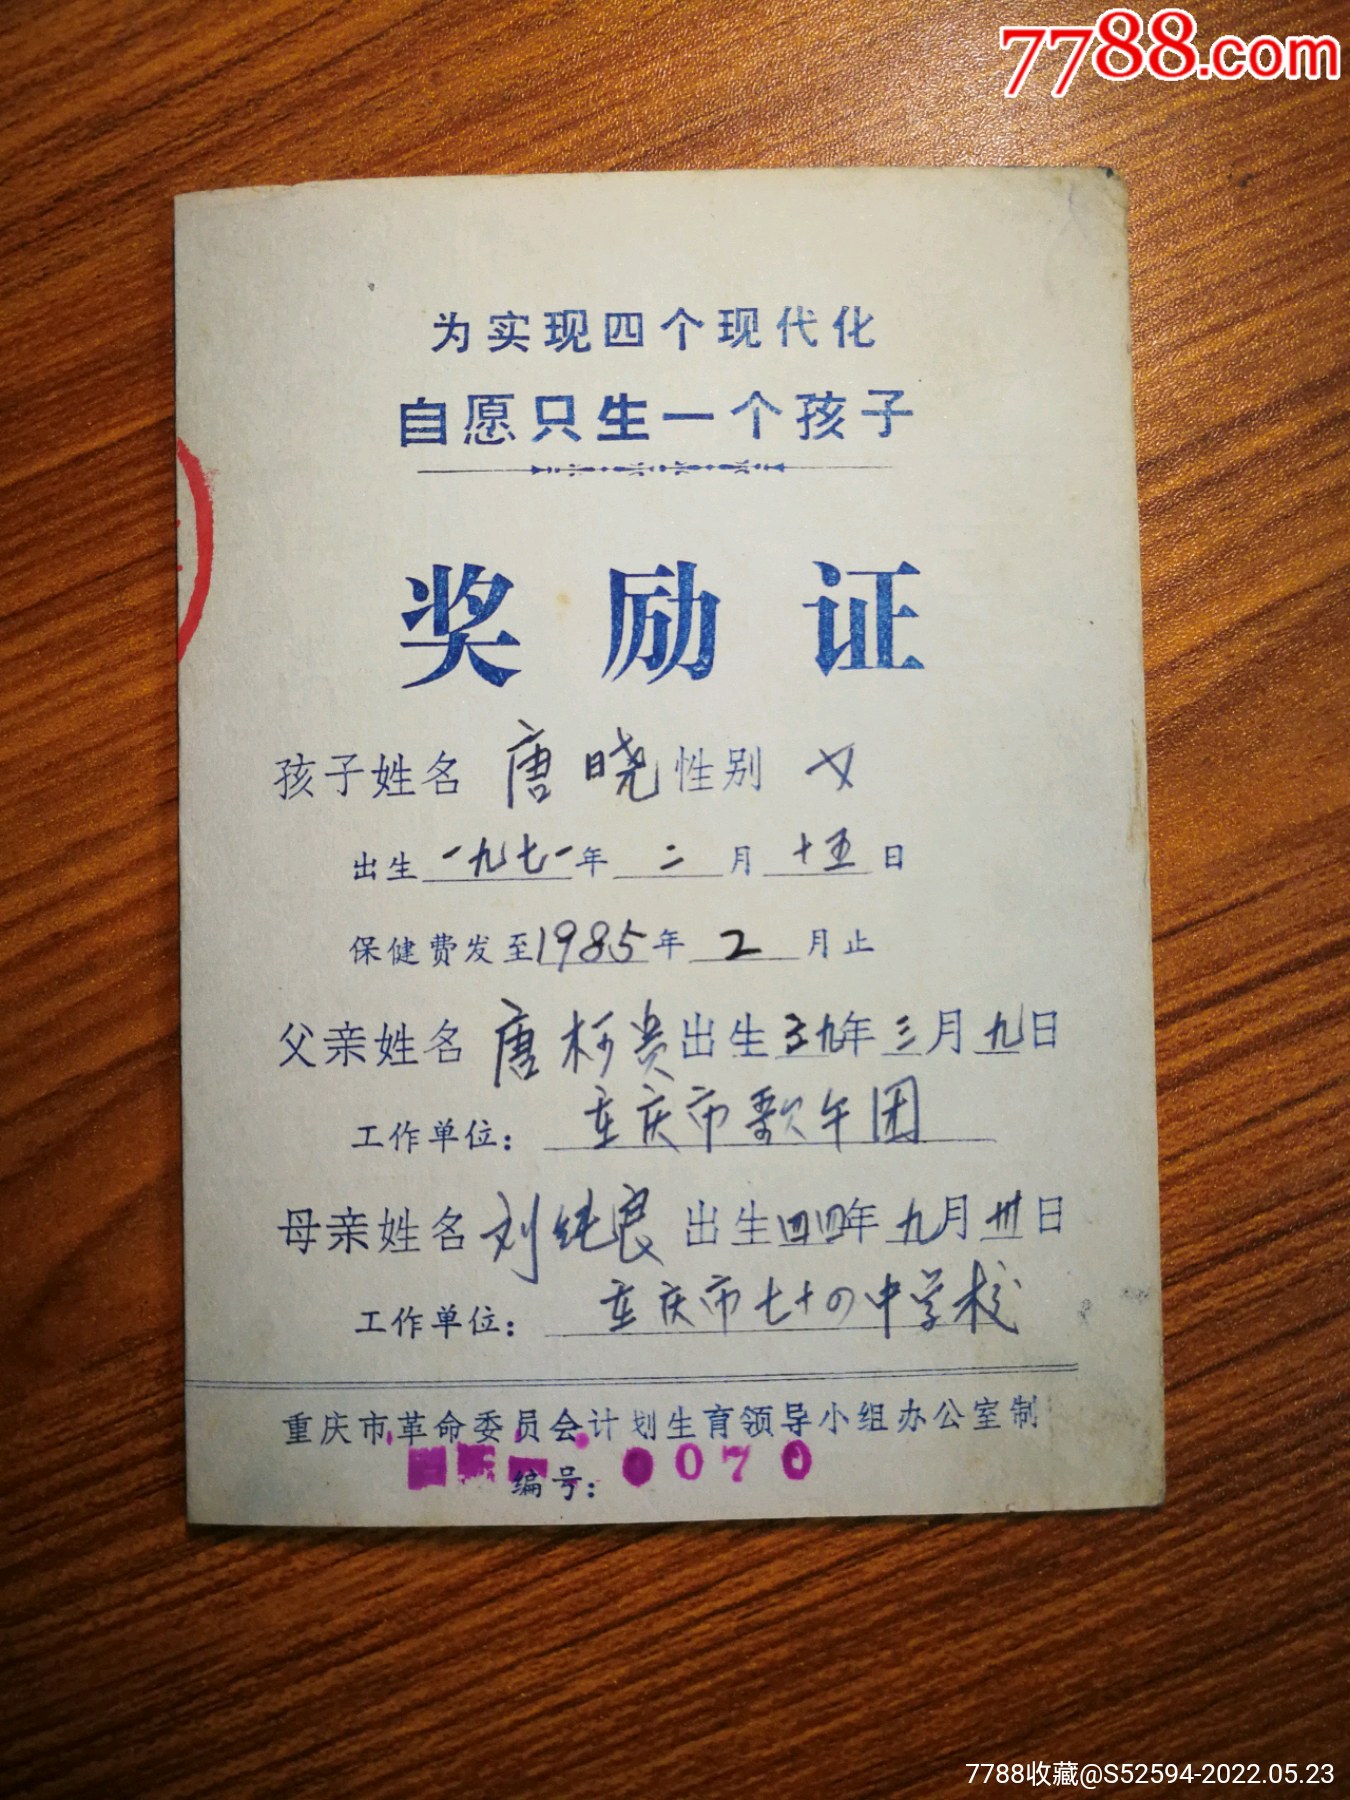 7788.com
为实现四个现代化
自愿只生一个孩子
奖励证
孩子姓名 唐晓 性别 女
出生一九七一年二月十五日
保健费发至1985年2月止
父亲姓名 唐柯贵 出生三九年三月九日
工作单位：重庆市歌午团
母亲姓名 刘纯良 出生四四年九月卅日
工作单位：重庆市七十四中学校
重庆市革命委员会计划生育领导小组办公室制
编号：0070
7788收藏@S52594-2022.05.23